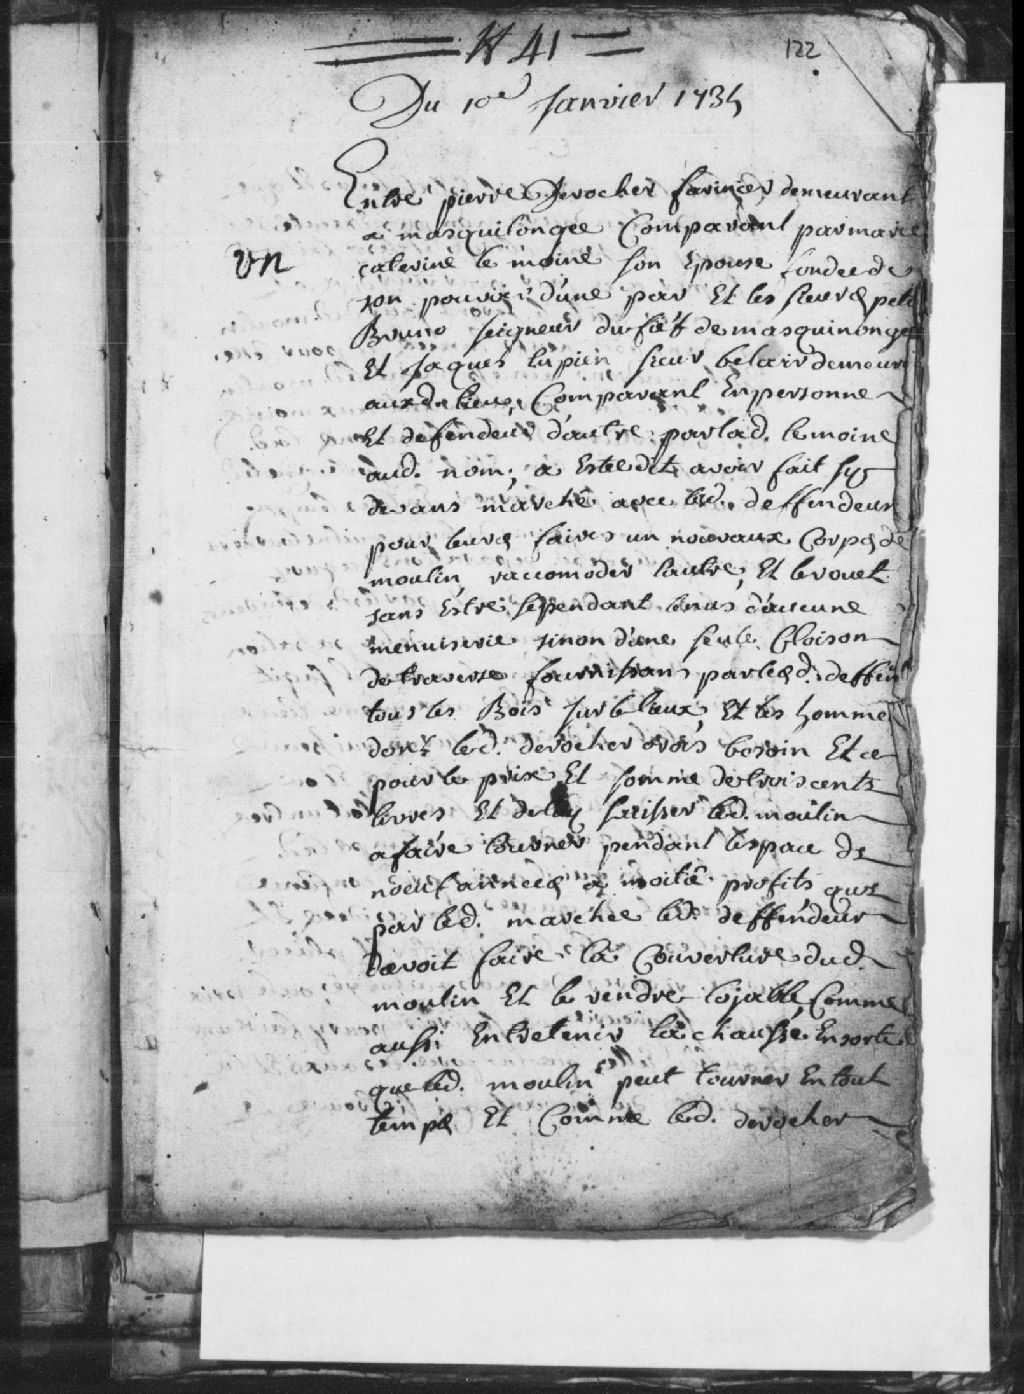 N 41
122
Du 10e Janvier 1735
Entre pierre Derocher farinier demeurant
a masquilongee Comparant par marie
Vn
Caterine le moine son Epouse fondee de
son pouvoir d'une par Et les sieurs petit
Bruno seigneur du fief de masquinongé
Et Jaques lupien sieur belair demeurt
aud. lieu, Comparant En personne
Et defendeur d'autre par lad. le moine
aud. nom, a Este dit avoir fait sy
devans marché avec led. deffendeur
pour leurs faires un nouvaux Corps de
moulin, racomoder lautre, Et le rouet
sans Estre sependant tenus d'aucune
menuiserie sinon d'une seule Cloison
de traverse fournissans par les d. deffend
tous les Bois sur le lieux, Et les homme
dont led. derocher orois besoin Et ce
pour le prix Et somme de trois cents
livres Et de luy laisser led. moulin
a faire tourner pendant lespace de
noeuf années a moitié profits que
par led. marchée led. deffendeur
devoit faire la Couverture dud.
moulin Et le rendre lojable Comme
aussi Entretenir la chaussé En sorte
que led. moulin peut tourner En tout
temps Et Comme led. derocher